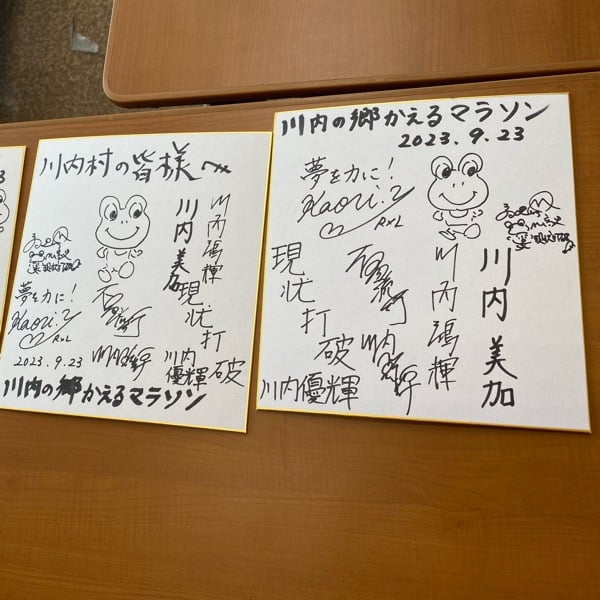 川内村の皆様へ
川内鴻輝
川内美加
現状打破
川内優輝
夢を力に!
Kaori.Y
RxL
2023.9.23
川内の郷かえるマラソン
川内の郷かえるマラソン
2023.9.23
夢を力に!
Kaori.Y
RxL
川内美加
川内鴻輝
現状打破
川内優輝